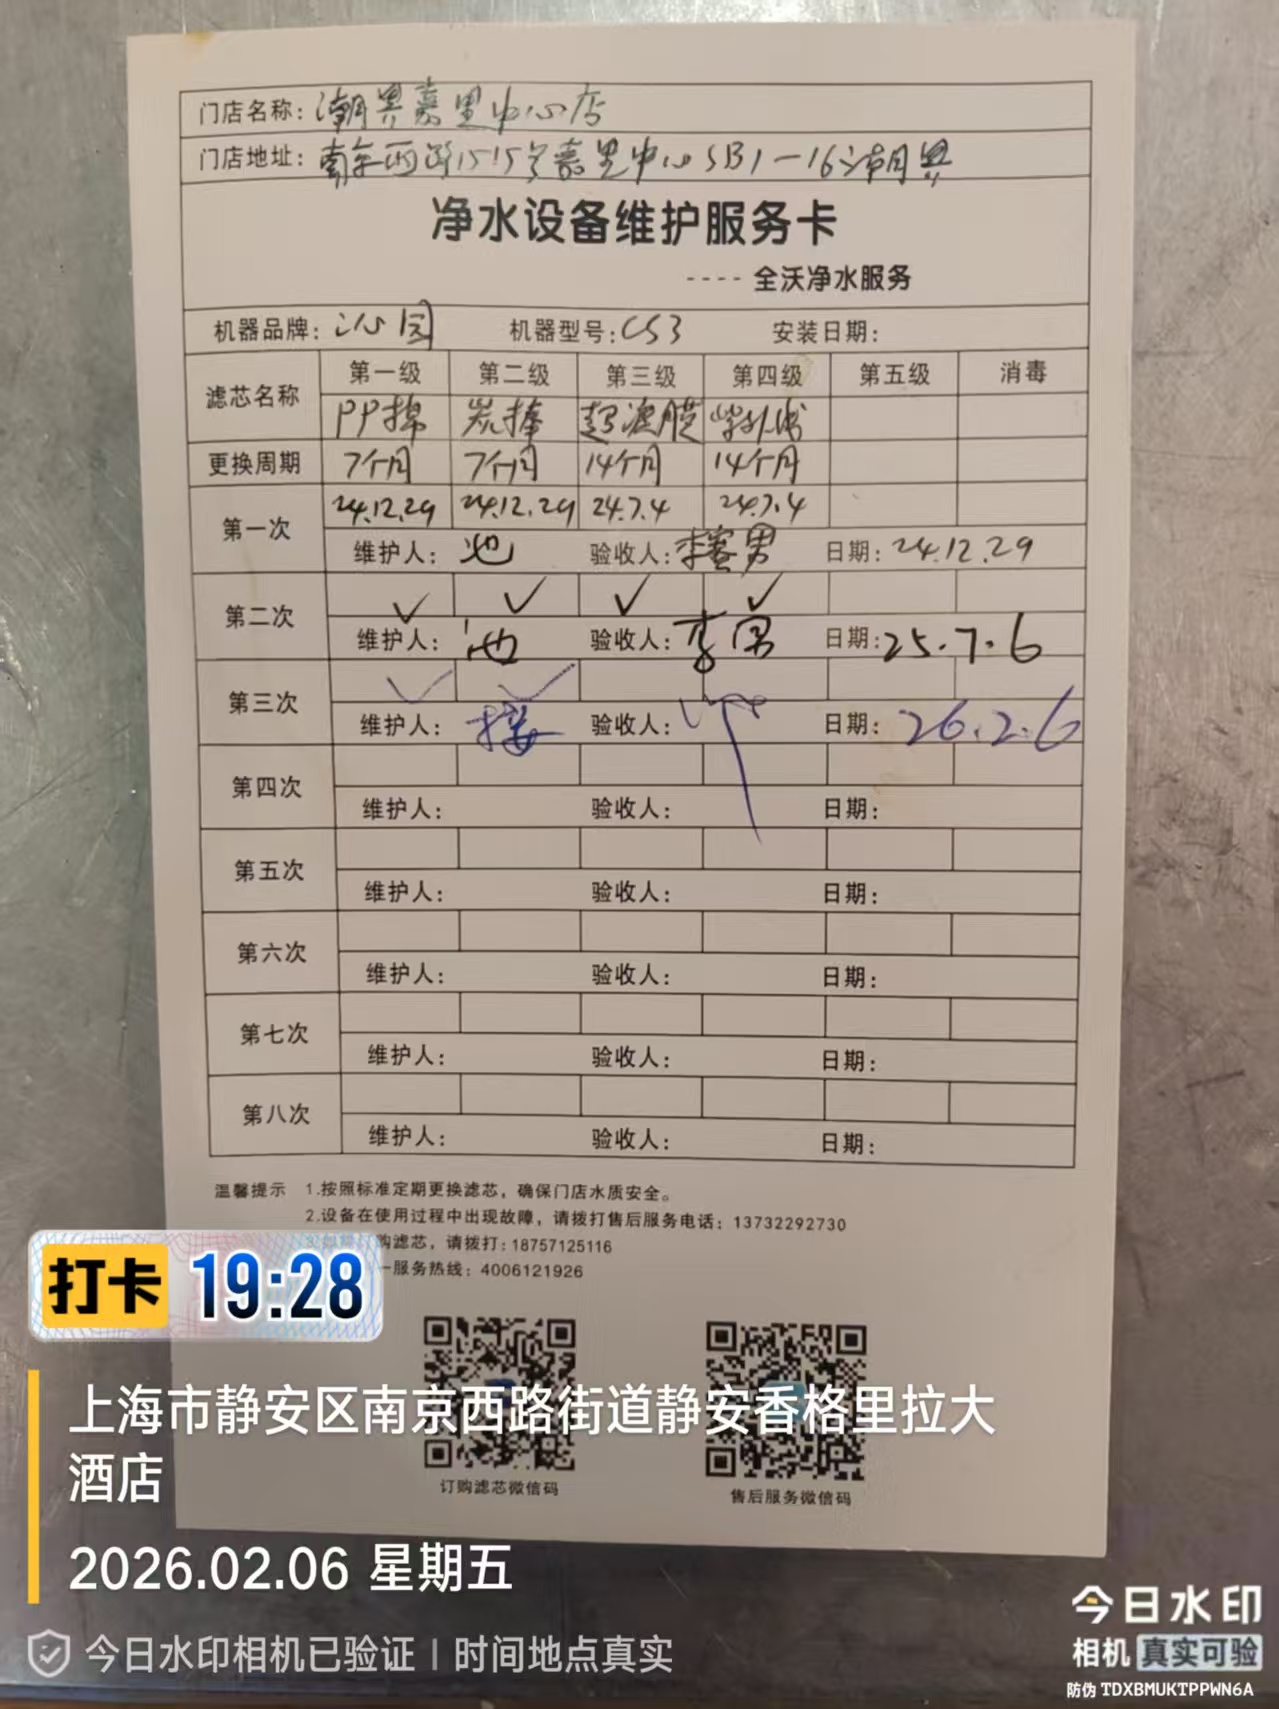 门店名称：潮界嘉里中心店
门店地址：南京西路1515号嘉里中心SB1-16潮界
净水设备维护服务卡
---- 全沃净水服务
机器品牌：沁园 机器型号：CS3 安装日期：
滤芯名称 第一级 第二级 第三级 第四级 第五级 消毒
PP棉 炭棒 超滤膜 紫外线
更换周期 7个月 7个月 14个月 14个月
第一次 24.12.29 24.12.29 24.7.4 24.7.4
维护人： 验收人：李 男 日期：24.12.29
第二次 ✓ ✓ ✓ ✓
维护人： 验收人：李男 日期：25.7.6
第三次 ✓ ✓
维护人： 验收人： 日期：26.2.6
第四次
维护人： 验收人： 日期：
第五次
维护人： 验收人： 日期：
第六次
维护人： 验收人： 日期：
第七次
维护人： 验收人： 日期：
第八次
维护人： 验收人： 日期：
温馨提示 1.按照标准定期更换滤芯，确保门店水质安全。
2.设备在使用过程中出现故障，请拨打售后服务电话：13732292730
购滤芯，请拨打：18757125116
一服务热线：4006121926
订购滤芯微信码 售后服务微信码
打卡 19:28
上海市静安区南京西路街道静安香格里拉大
酒店
2026.02.06 星期五
今日水印相机已验证 | 时间地点真实
今日水印
相机 真实可验
防伪 TDXBMUKTPPWN6A